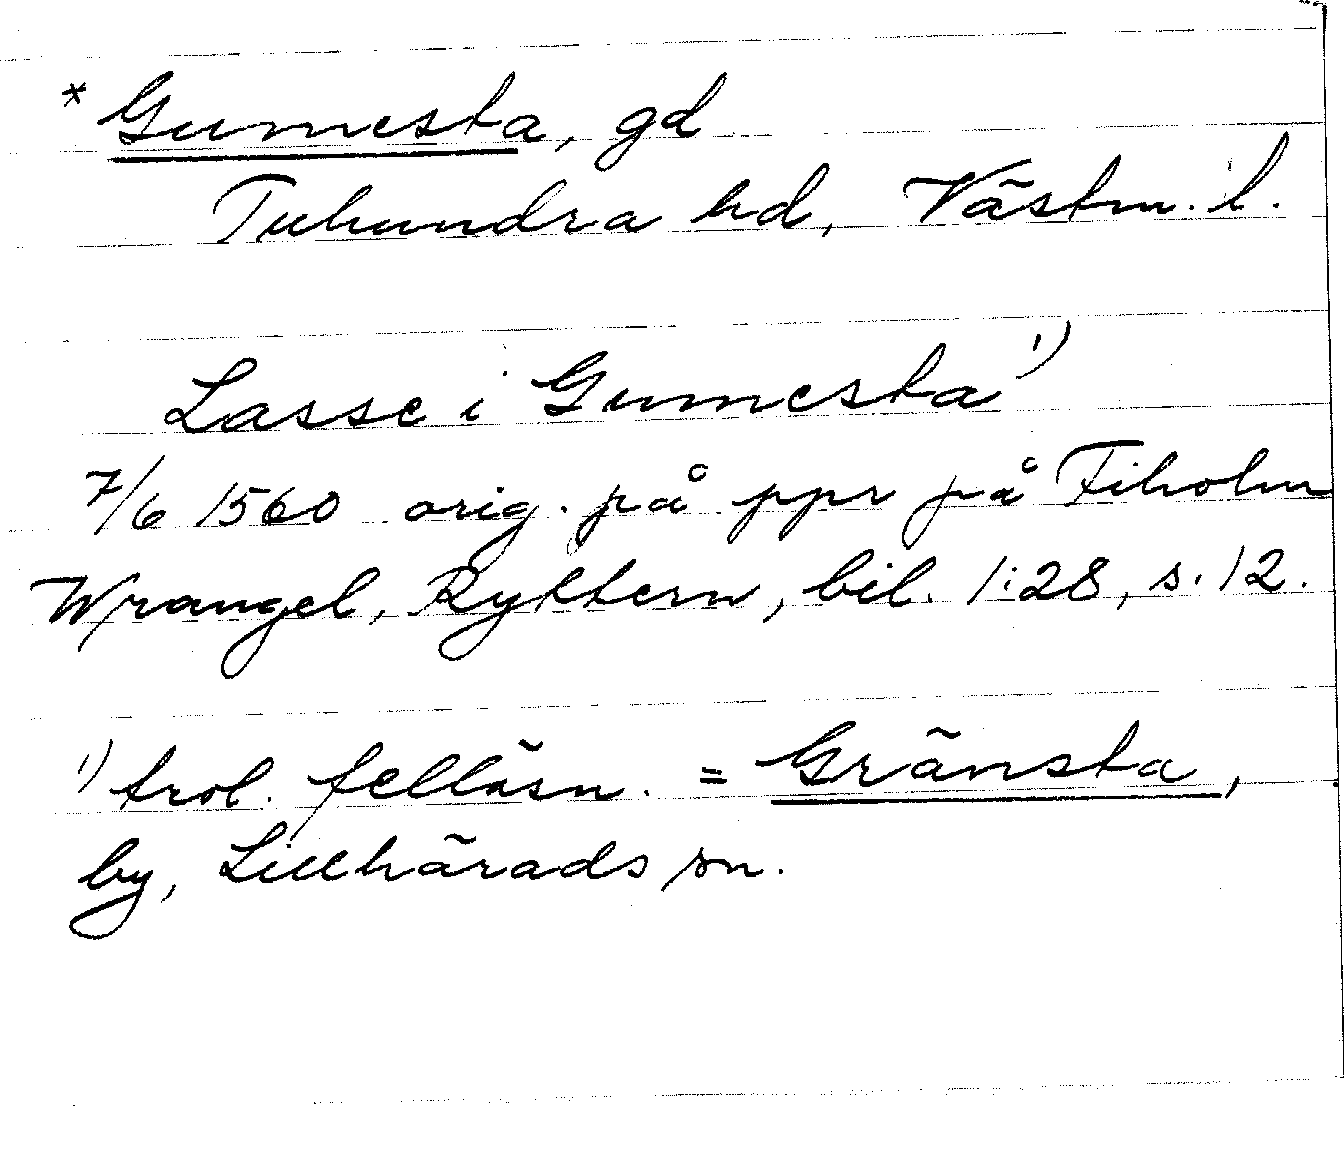 * Gumesta, gd
Tuhundra hd, Västm. l.
Lasse i Gumesta 1)
7/6 1560 orig. på ppr på Fiholm
Wrangel, Ryttern, bil. 1:28, s. 12.
1) trol. felläsn. = Gränsta,
by, Lillhärads sn.